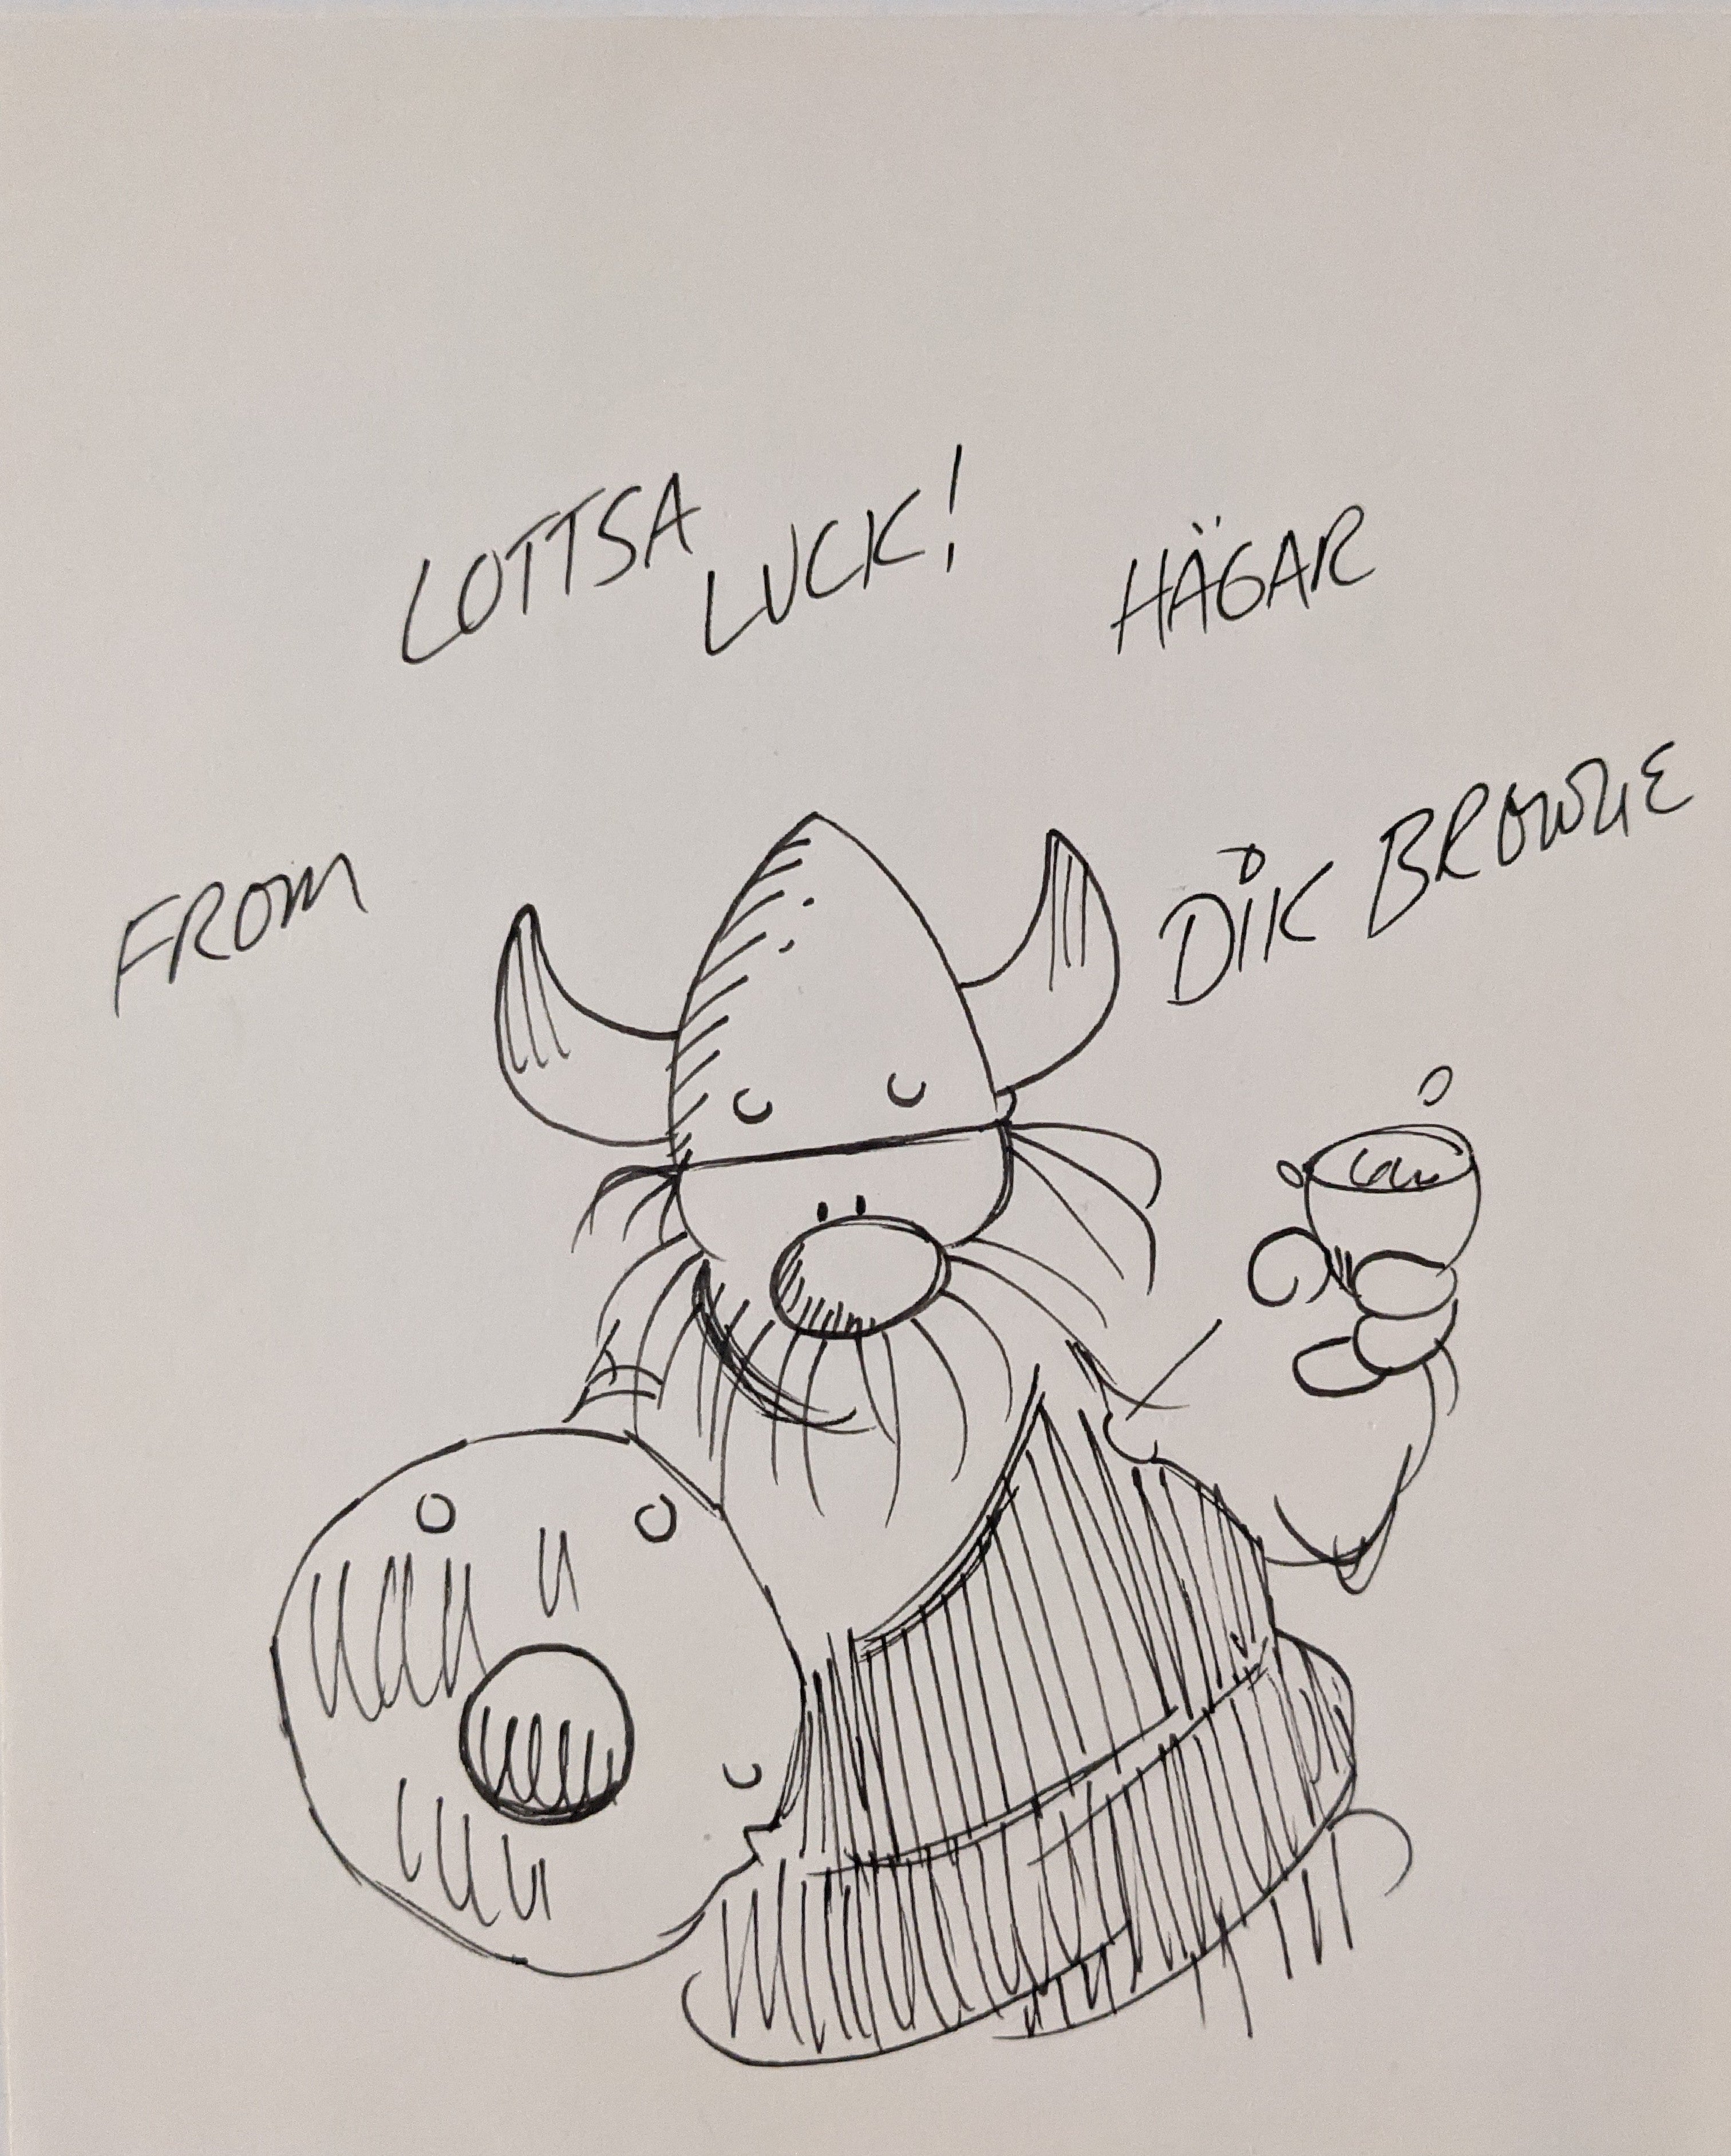 LOTTSA LUCK!
HÄGAR
FROM
DIK BROWNE